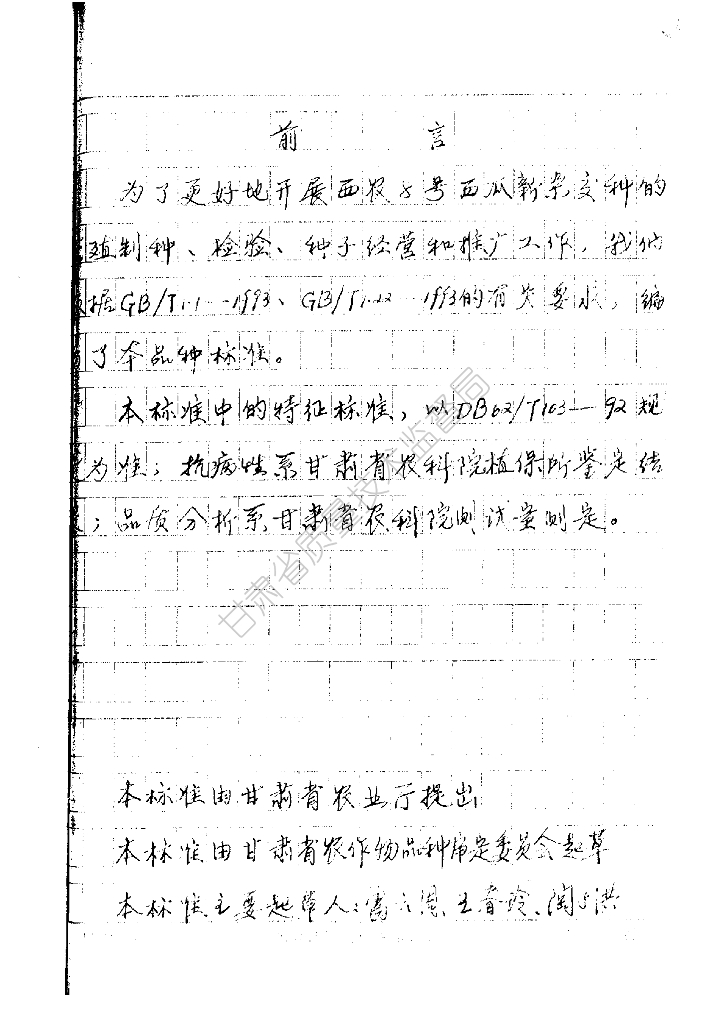 前 言
为了更好地开展西农8号西瓜新杂交种的
殖制种、检验、种子经营和推广工作，我们
据GB/T1·1—1993、GB/T1·22—1993的有关要求，编
了本品种标准。
本标准中的特征标准，以DB62/T103—92规
为准；抗病性系甘肃省农科院植保所鉴定结
；品质分析系甘肃省农科院测试室测定。
本标准由甘肃省农业厅提出
本标准由甘肃省农作物品种审定委员会起草
本标准主要起草人：王春玲、
甘肃省质量技术监督局